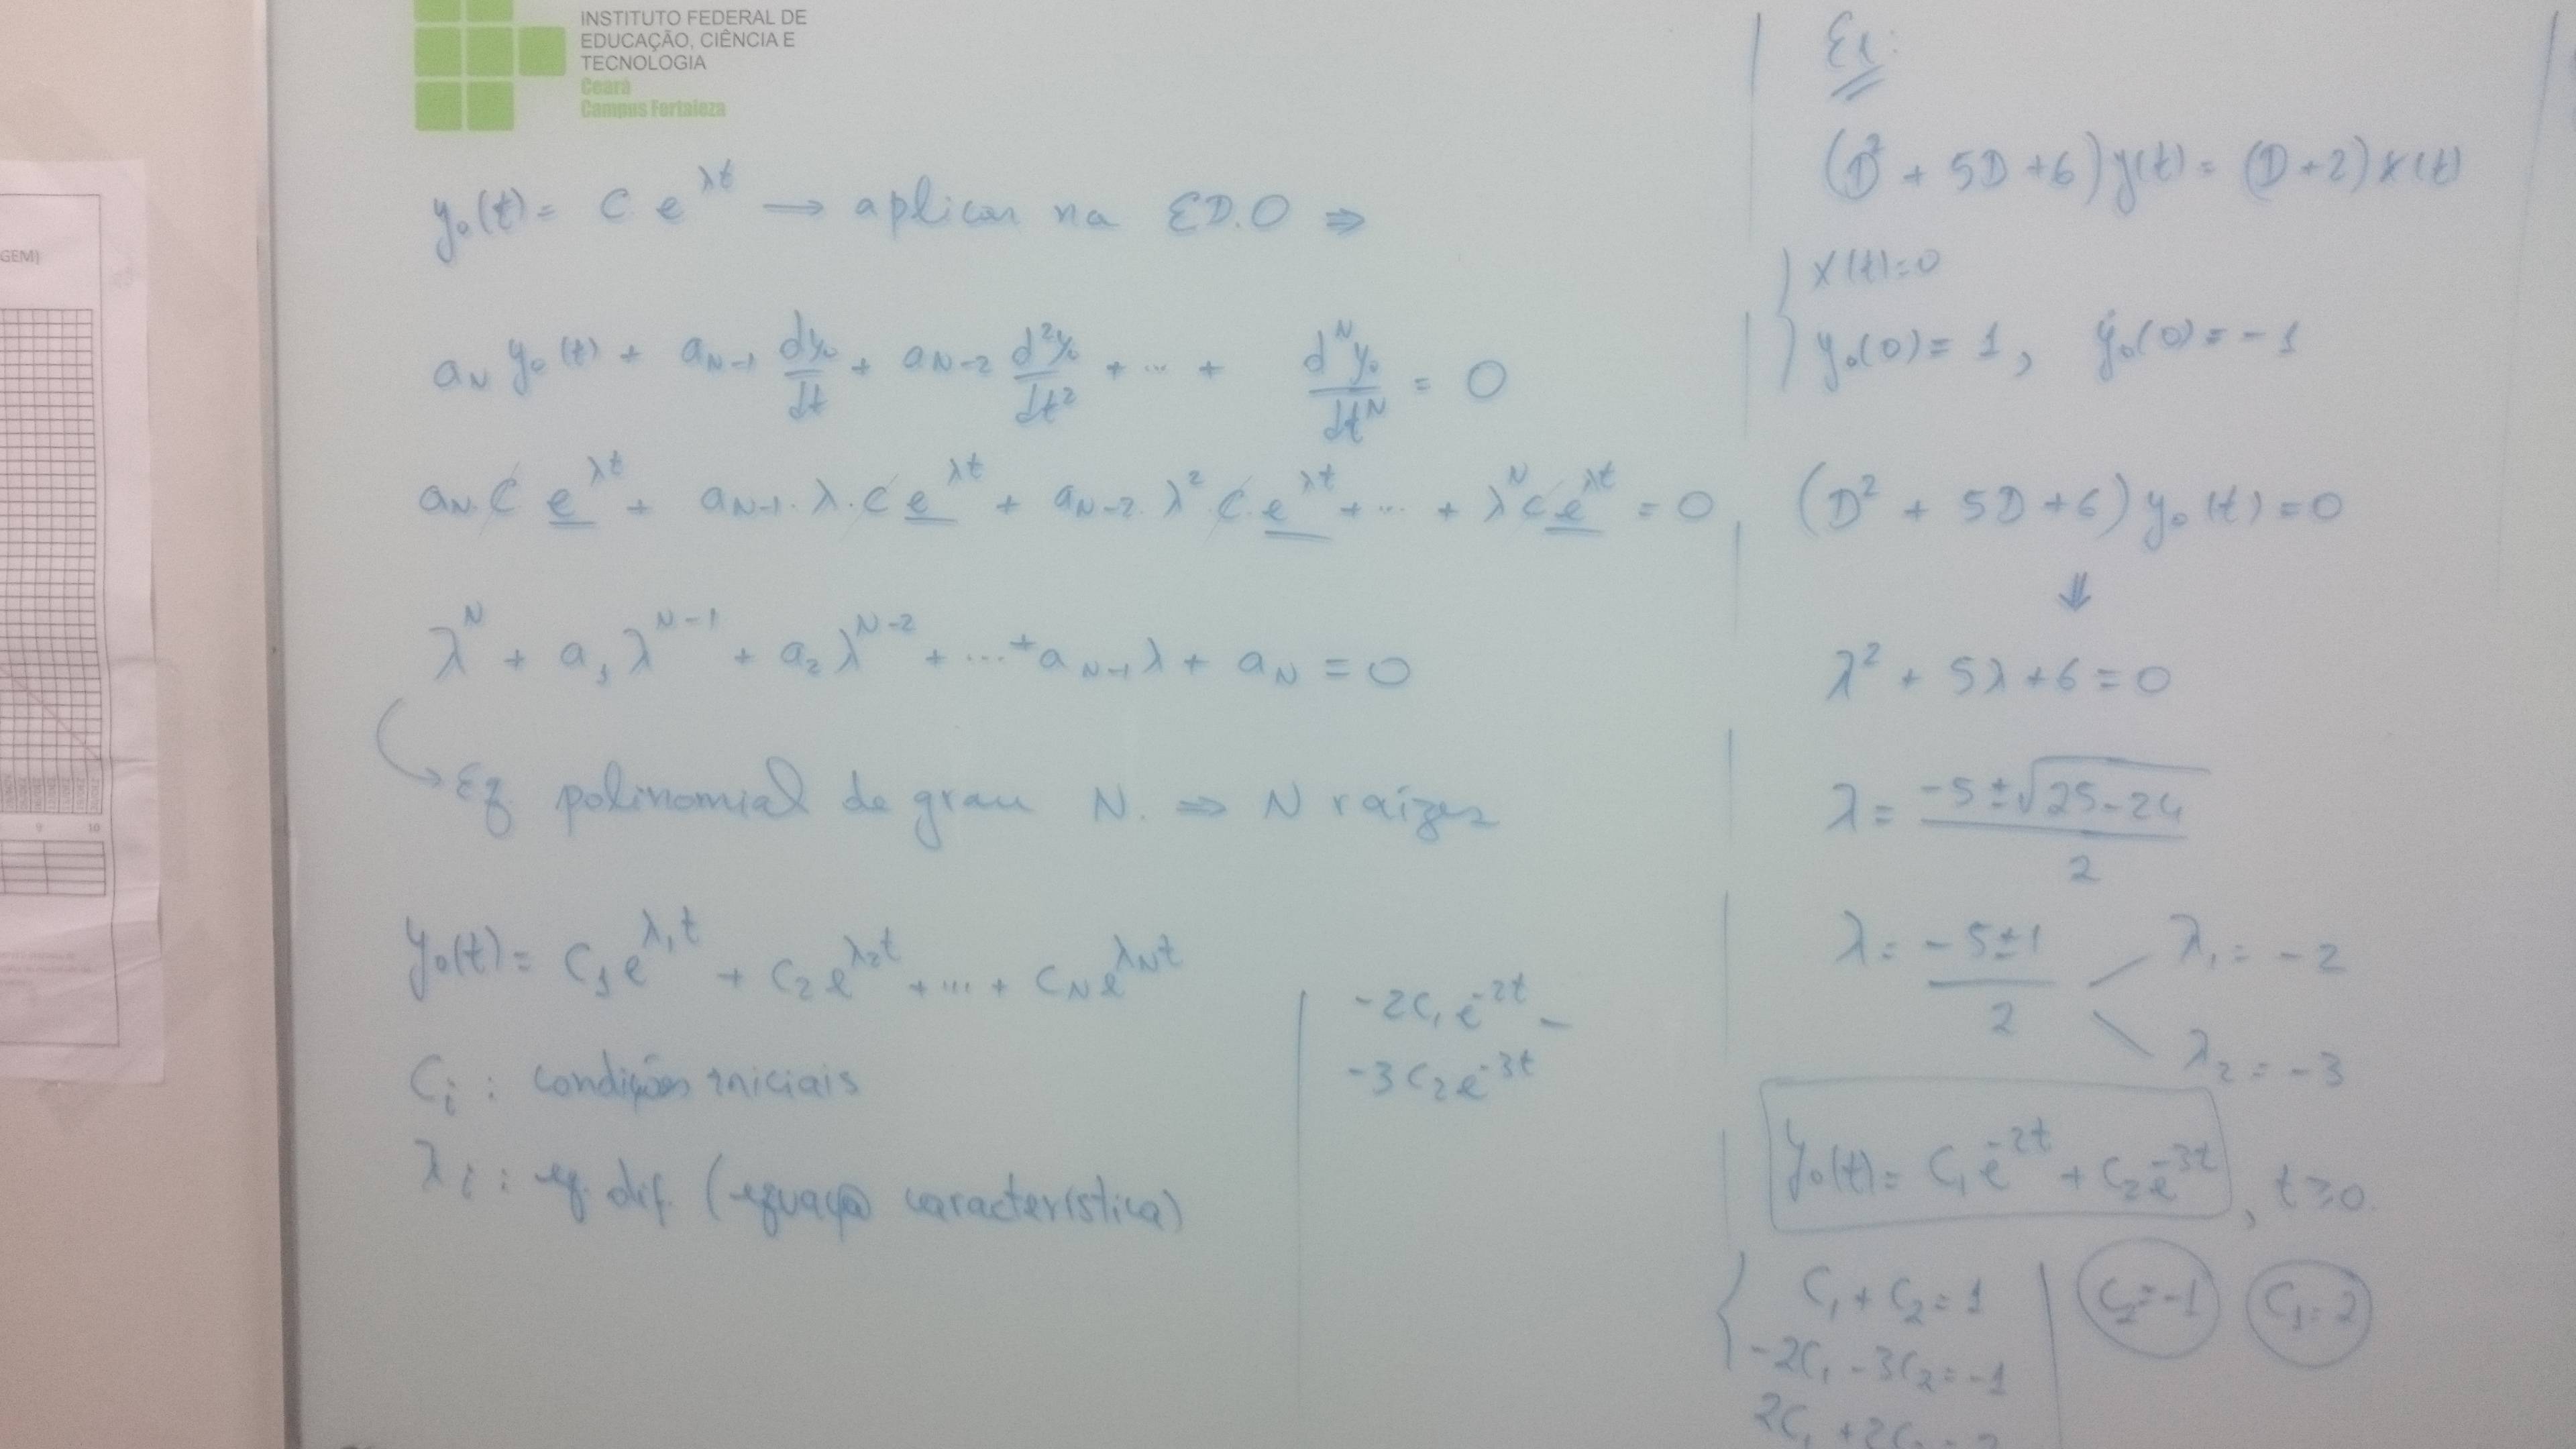 INSTITUTO FEDERAL DE
EDUCAÇÃO, CIÊNCIA E
TECNOLOGIA
Ceará
Campus Fortaleza
GEM)
9 10
y₀(t) = C e^{λt} → aplicar na ED.O ⇒
a_N y₀(t) + a_{N-1} dy₀/dt + a_{N-2} d²y₀/dt² + ... + d^N y₀/dt^N = 0
a_N. C e^{λt} + a_{N-1}. λ. C e^{λt} + a_{N-2}. λ² C. e^{λt} + ... + λ^N C e^{λt} = 0
λ^N + a₁ λ^{N-1} + a₂ λ^{N-2} + ... + a_{N-1} λ + a_N = 0
→ Eq polinomial de grau N. ⇒ N raízes
y₀(t) = C₁ e^{λ₁t} + C₂ e^{λ₂t} + ... + C_N e^{λ_N t}
C_i : condições iniciais
λ_i : eq. dif. (equação característica)
-2C₁ e^{-2t} -
-3C₂ e^{-3t}
Ex:
(D² + 5D + 6) y(t) = (D + 2) x(t)
x(t) = 0
y₀(0) = 1, ẏ₀(0) = -1
(D² + 5D + 6) y₀(t) = 0
⇓
λ² + 5λ + 6 = 0
λ = (-5 ± √(25 - 24))/2
λ = (-5 ± 1)/2 λ₁ = -2
λ₂ = -3
y₀(t) = C₁ e^{-2t} + C₂ e^{-3t}, t ≥ 0.
C₁ + C₂ = 1 | C₂ = -1 C₁ = 2
-2C₁ - 3C₂ = -1
2C₁ + 2C₂ = 2